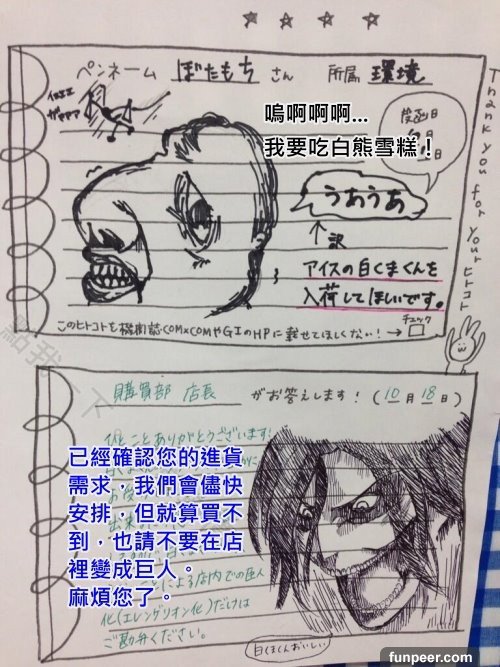 ペンネーム ぼたもち さん 所属 環境
嗚啊啊啊...
我要吃白熊雪糕！
うあうあ
↑訳
アイスの白くまくんを
入荷してほしいです。
チェック
このヒトコトを機関誌COM×COMやGIのHPに載せてほしくない！→□
Thank you for your ヒトコト
點我一下
購買部 店長 がお答えします！（10月18日）
ひとことありがとうございます！
已經確認您的進貨
需求，我們會儘快
安排，但就算買不
到，也請不要在店
裡變成巨人。
麻煩您了。
による店内での巨人
化(エレンゲリオン化)だけは
ご勘弁ください。
白くまくんおいしい
funpeer.com